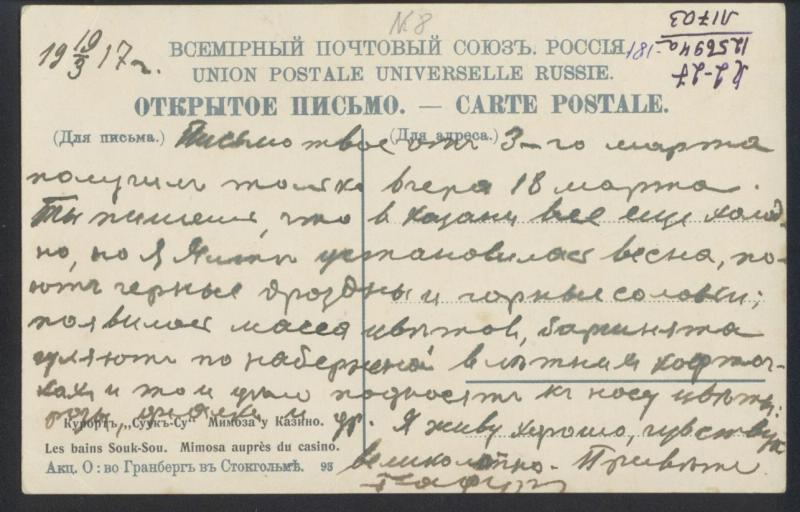 № 8
19 19/3 17 г.
ВСЕМІРНЫЙ ПОЧТОВЫЙ СОЮЗЪ. РОССІЯ.
UNION POSTALE UNIVERSELLE RUSSIE.
ОТКРЫТОЕ ПИСЬМО. — CARTE POSTALE.
(Для письма.) (Для адреса.)
Письмо твое отъ 3-го марта
получилъ только вчера 18 марта.
Ты пишешь, что в Казани все еще холод-
но, но в Ялты установилась весна, по-
ютъ черные дрозды и горные соловьи;
появилась масса цвѣтов, барышнята
гуляютъ по набережной в лѣтних кофточ-
ках и то и дело подносятъ къ носу цвѣты:
розы, и др. Я живу хорошо, чувствую
великолѣпно. Привѣты
Курортъ „Суукъ-Су“ Мимоза у Казино.
Les bains Souk-Sou. Mimosa auprès du casino.
Акц. О: во Гранбергъ въ Стокгольмѣ. 95